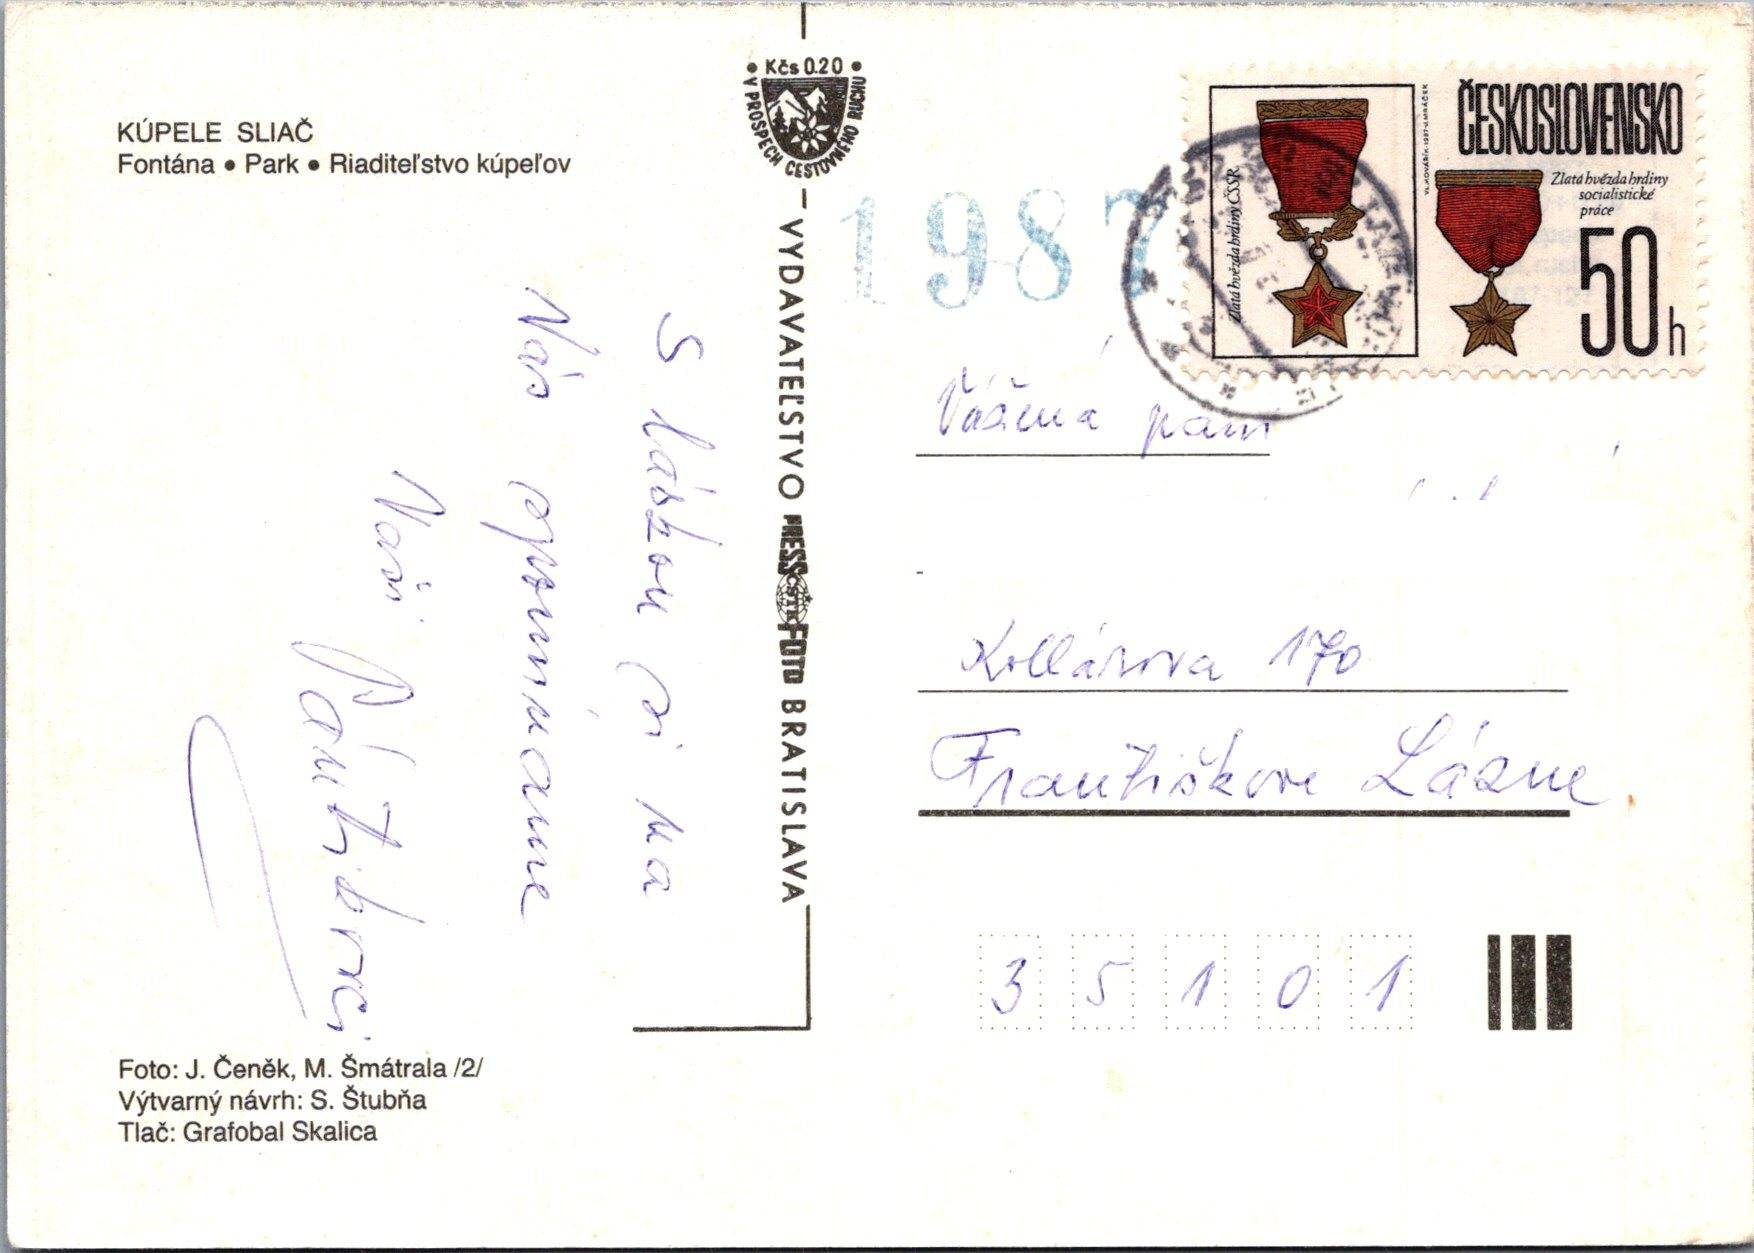 KÚPELE SLIAČ
Fontána • Park • Riaditeľstvo kúpeľov
• Kčs 0.20 •
V PROSPECH CESTOVNÉHO RUCHU
VYDAVATEĽSTVO PRESSFOTO BRATISLAVA
ČSTK
1987
ČESKOSLOVENSKO
Zlatá hvězda hrdiny ČSSR
Zlatá hvězda hrdiny
socialistické
práce
50 h
S láskou si na
Vás spomíname
Vaši
Vážená pani
Kollárova 170
Františkove Lázne
35101
Foto: J. Čeněk, M. Šmátrala /2/
Výtvarný návrh: S. Štubňa
Tlač: Grafobal Skalica